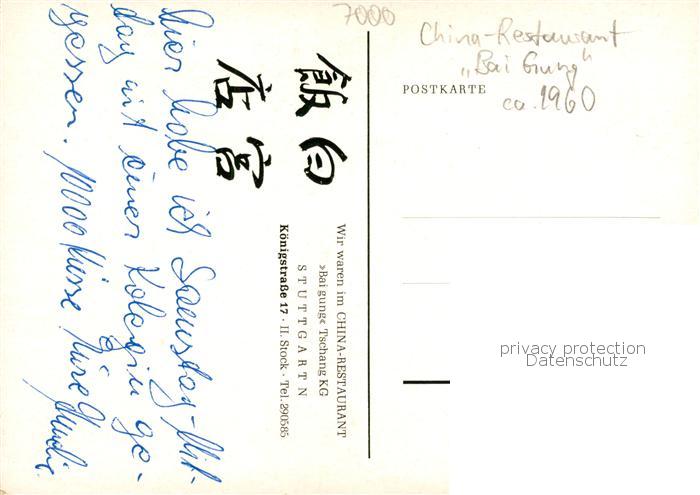 7000
China-Restaurant
„Bai Gung“
ca. 1960
POSTKARTE
白宮
飯店
Wir waren im CHINA-RESTAURANT
»Bai gung« Tschang KG
STUTTGART N
Königstraße 17 · II. Stock · Tel. 290585
hier habe ich Samstag-Mit-
tag mit einer Kollegin ge-
gessen. 10000 Küsse
privacy protection
Datenschutz